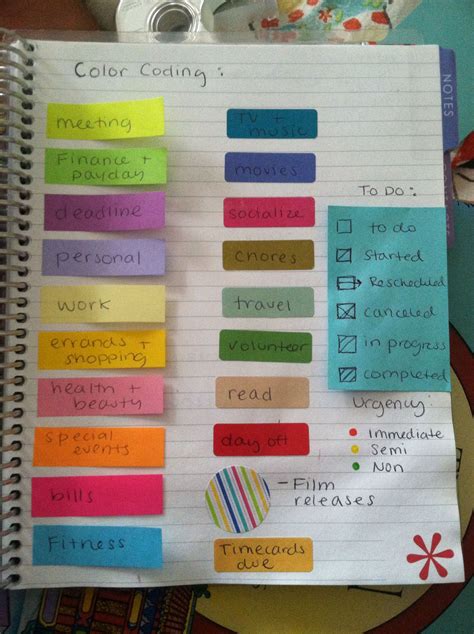 Color Coding:
NOTES
meeting
Finance +
payday
deadline
personal
work
errands +
shopping
health +
beauty
special
events
bills
Fitness
TV +
music
movies
socialize
chores
travel
volunteer
read
day off
- Film
releases
Timecards
due
To Do:
to do
started
Rescheduled
canceled
in progress
completed
Urgency:
Immediate
Semi
Non